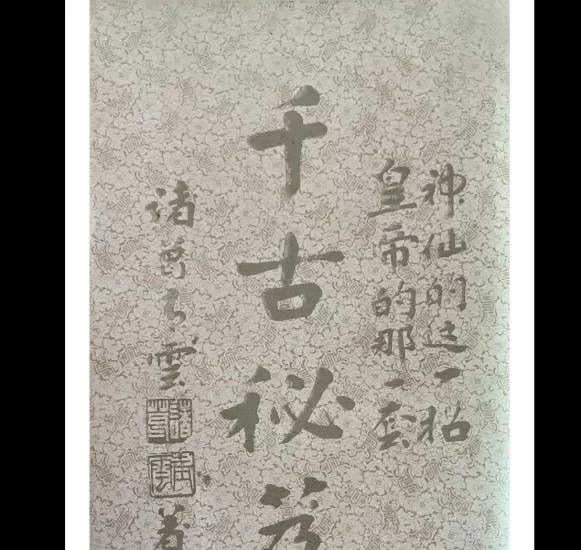 神仙的这一招
皇帝的那一套
千古秘
诸葛 雲